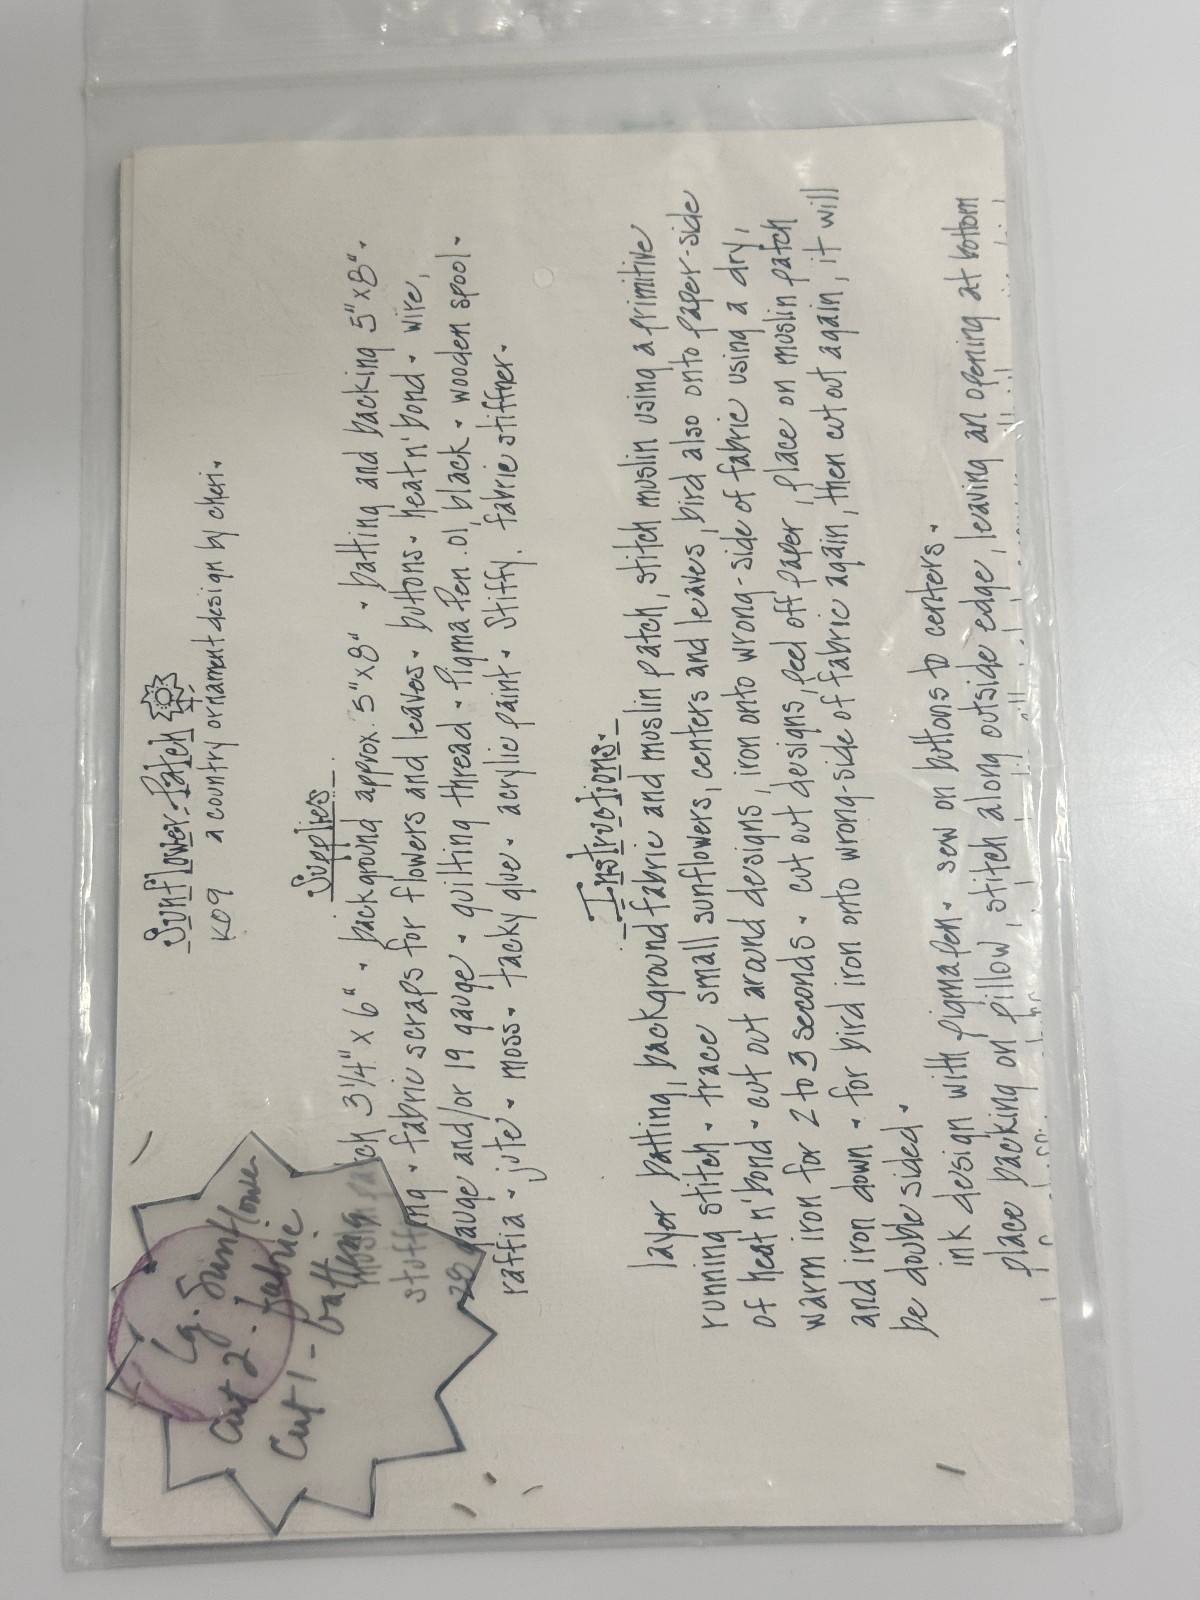 Sunflower-Patch
K09 a country ornament design by cheri.
Supplies
muslin patch 3¼" x 6" . background approx. 5" x 8" . batting and backing 5" x 8" .
stuffing . fabric scraps for flowers and leaves . buttons . heat n' bond . wire,
28 gauge and/or 19 gauge . quilting thread . pigma pen .01, black . wooden spool .
raffia . jute . moss . tacky glue . acrylic paint . stiffy, fabric stiffner .
Instructions
layer batting, background fabric and muslin patch, stitch muslin using a primitive
running stitch . trace small sunflowers, centers and leaves, bird also onto paper-side
of heat n' bond . cut out around designs, iron onto wrong-side of fabric using a dry,
warm iron for 2 to 3 seconds . cut out designs, peel off paper, place on muslin patch
and iron down . for bird iron onto wrong-side of fabric again, then cut out again, it will
be double sided .
ink design with pigma pen . sew on buttons to centers .
place backing on pillow, stitch along outside edge, leaving an opening at bottom
Lg. Sunflower
Cut 2 - fabric
Cut 1 - batting